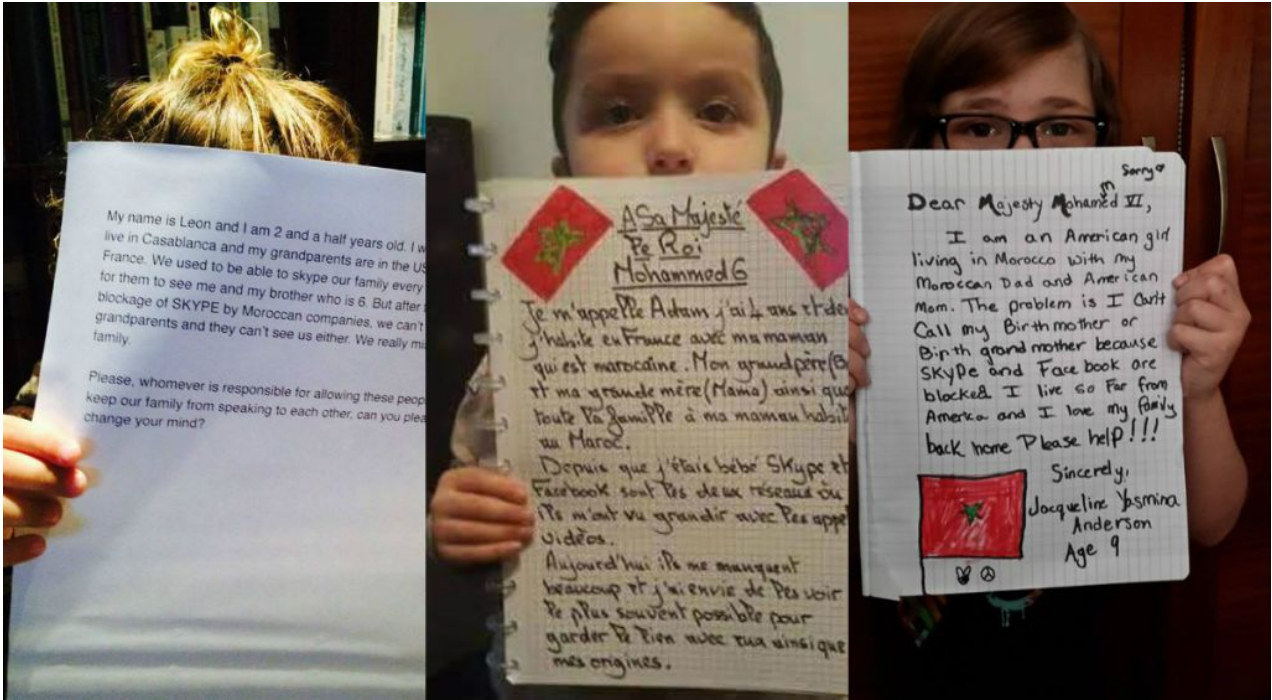 My name is Leon and I am 2 and a half years old. I
live in Casablanca and my grandparents are in the
France. We used to be able to skype our family every
for them to see me and my brother who is 6. But after
blockage of SKYPE by Moroccan companies, we can't
grandparents and they can't see us either. We really
family.
Please, whomever is responsible for allowing these
keep our family from speaking to each other, can you
change your mind?
A Sa Majesté
Le Roi
Mohammed 6
Je m'appelle Adam j'ai 4 ans et
j'habite en France avec ma maman
qui est marocaine. Mon grand père
et ma grande mère (Mama) ainsi que
toute la famille à ma maman
au Maroc.
Depuis que j'étais bébé Skype et
Facebook sont les deux réseaux où
ils m'ont vu grandir avec les
vidéos.
Aujourd'hui ils me manquent
beaucoup et j'ai envie de les voir
le plus souvent possible pour
garder le lien avec eux ainsi que
mes origines.
Sorry
m
Dear Majesty Mohamed VI,
I am an American girl
living in Morocco with my
Moroccan Dad and American
Mom. The problem is I Can't
Call my Birthmother or
Birth grandmother because
SKYPe and Face book are
blocked I live so far from
America and I love my family
back home Please help!!!
Sincerely,
Jacqueline Yasmina
Anderson
Age 9